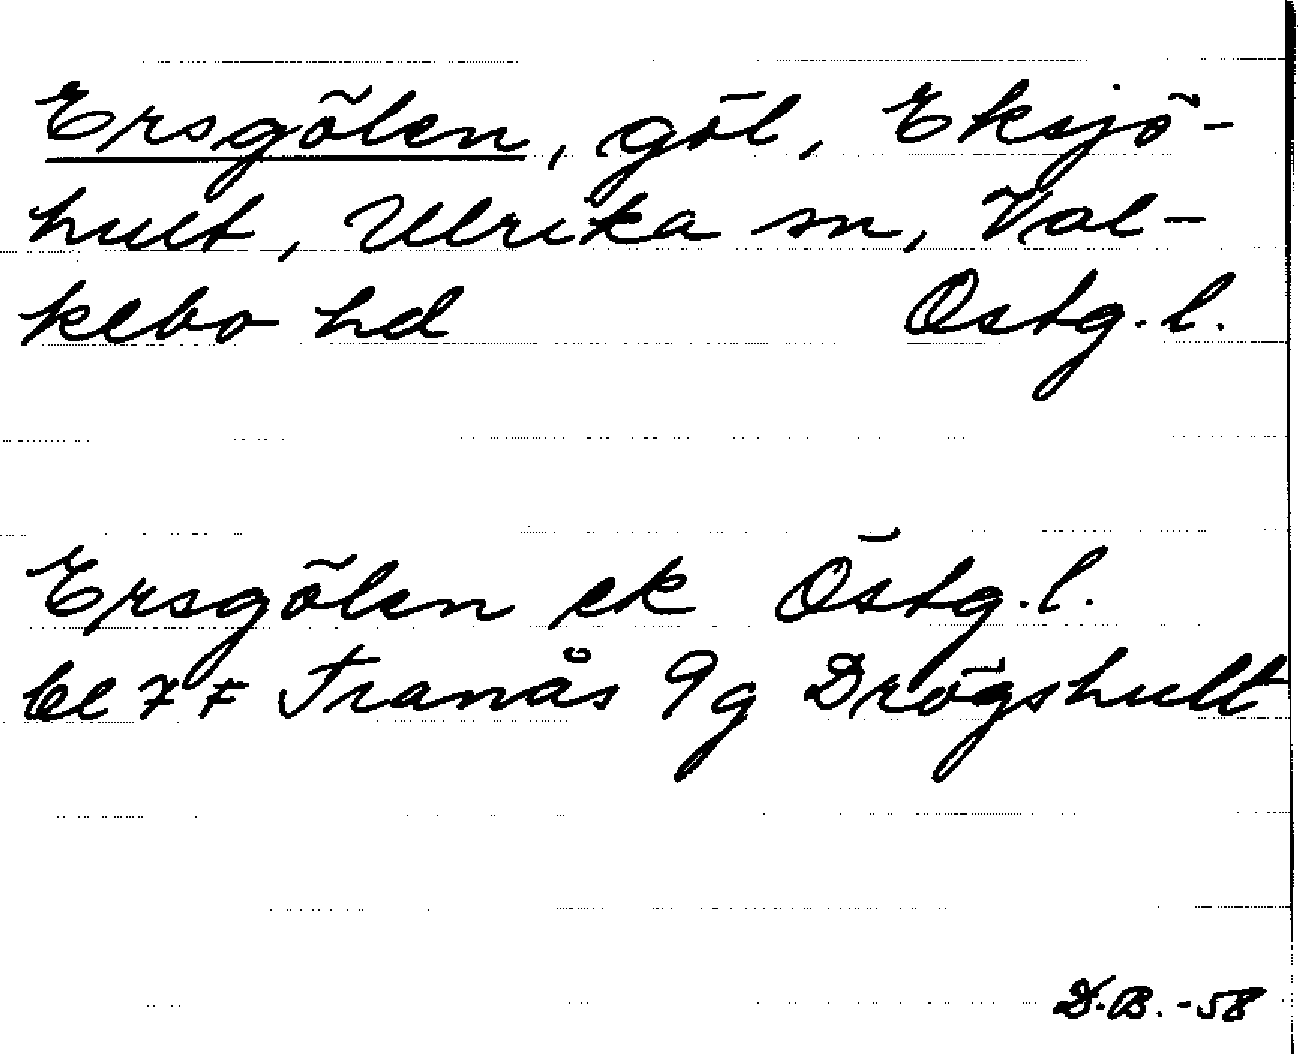 Ersgölen, göl, Eksjö-
hult, Ulrika sn, Val-
kebo hd Östg.l.
Ersgölen ek Östg.l.
bl 77 Tranås 9g Drögshult
D.B. -58